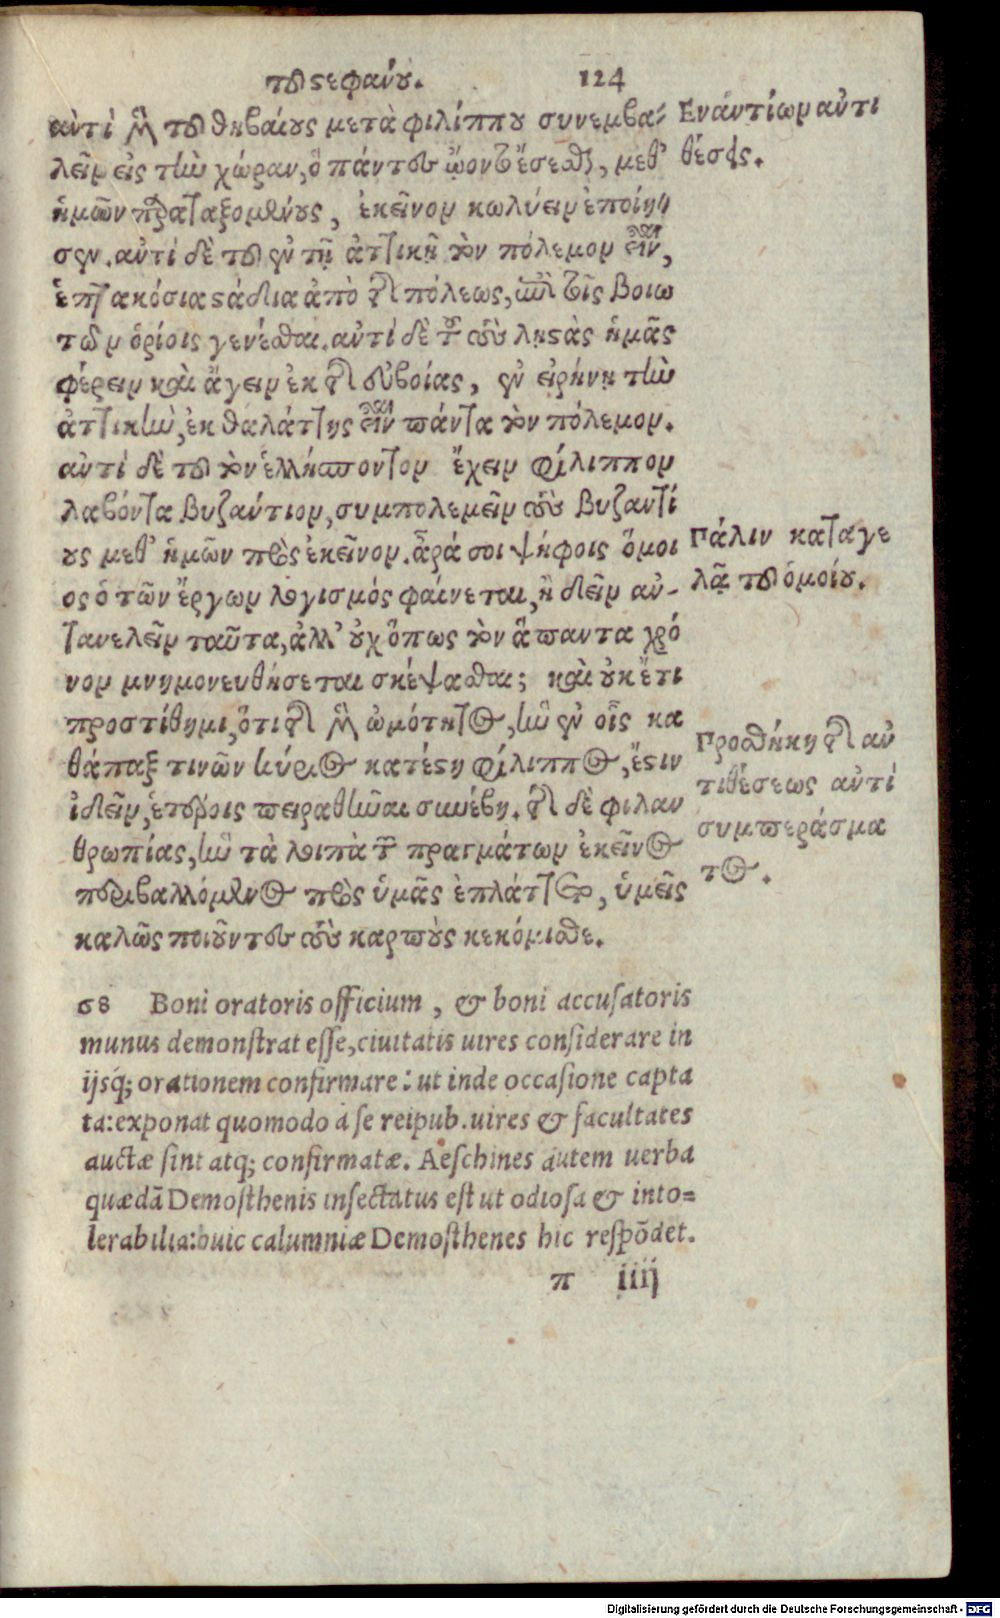 τοῦ στεφάνου. 124
αὐτὶ μὲν τοῦ θηβαίους μετὰ φιλίππου συνεμβα- Εναντίων αὐτι
λεῖν εἰς τὴν χώραν, ὃ πάντες ᾤοντο ἔσεσθαι, μεθ’ θέσεις.
ἡμῶν παραταξομένους, ἐκεῖνον κωλύειν ἐποίη
σεν. αὐτὶ δὲ τοῦ ἐν τῇ ἀττικῇ τὸν πόλεμον εἶναι,
ἑπτακόσια στάδια ἀπὸ τῆς πόλεως, ἐπὶ τοῖς βοιω
τῶν ὁρίοις γενέσθαι. αὐτὶ δὲ τοῦ τοὺς ληστὰς ἡμᾶς
φέρειν καὶ ἄγειν ἐκ τῆς εὐβοίας, ἐν εἰρήνῃ τὴν
ἀττικὴν, ἐκ θαλάττης εἶναι πάντα τὸν πόλεμον.
αὐτὶ δὲ τοῦ τὸν ἑλλήσποντον ἔχειν φίλιππον
λαβόντα βυζάντιον, συμπολεμεῖν τοὺς βυζαντί
ους μεθ’ ἡμῶν πρὸς ἐκεῖνον. ἆρά σοι ψήφοις ὅμοι Πάλιν καταγε
ος ὁ τῶν ἔργων λογισμός φαίνεται, ἢ δεῖν αὐ- λᾷ τοῦ ὁμοίου.
τανελεῖν ταῦτα, ἀλλ’ οὐχ ὅπως τὸν ἅπαντα χρό
νον μνημονευθήσεται σκέψασθαι; καὶ οὐκ ἔτι
προστίθημι, ὅτι τῆς μὲν ὠμότητος, ἣν ἐν οἷς κα Προσθήκη τῆς αὐ
θάπαξ τινῶν κύριος κατέστη φίλιππος, ἔστιν τιθέσεως αὐτὶ
ἰδεῖν, ἑτέροις πειραθῆναι συνέβη. τῆς δὲ φιλαν συμπεράσμα
θρωπίας, ἣν τὰ λοιπὰ τῶν πραγμάτων ἐκεῖνος τος.
περιβαλλόμενος πρὸς ὑμᾶς ἐπλάττετο, ὑμεῖς
καλῶς ποιοῦντες τοὺς καρποὺς κεκόμισθε.
68 Boni oratoris officium, & boni accusatoris
munus demonstrat esse, ciuitatis uires considerare in
ijsq; orationem confirmare: ut inde occasione capta
ta: exponat quomodo à se reipub. uires & facultates
auctæ sint atq; confirmatæ. Aeschines autem uerba
quædã Demosthenis insectatus est ut odiosa & into=
lerabilia: huic calumniæ Demosthenes hic respõdet.
π iiij
Digitalisierung gefördert durch die Deutsche Forschungsgemeinschaft - DFG